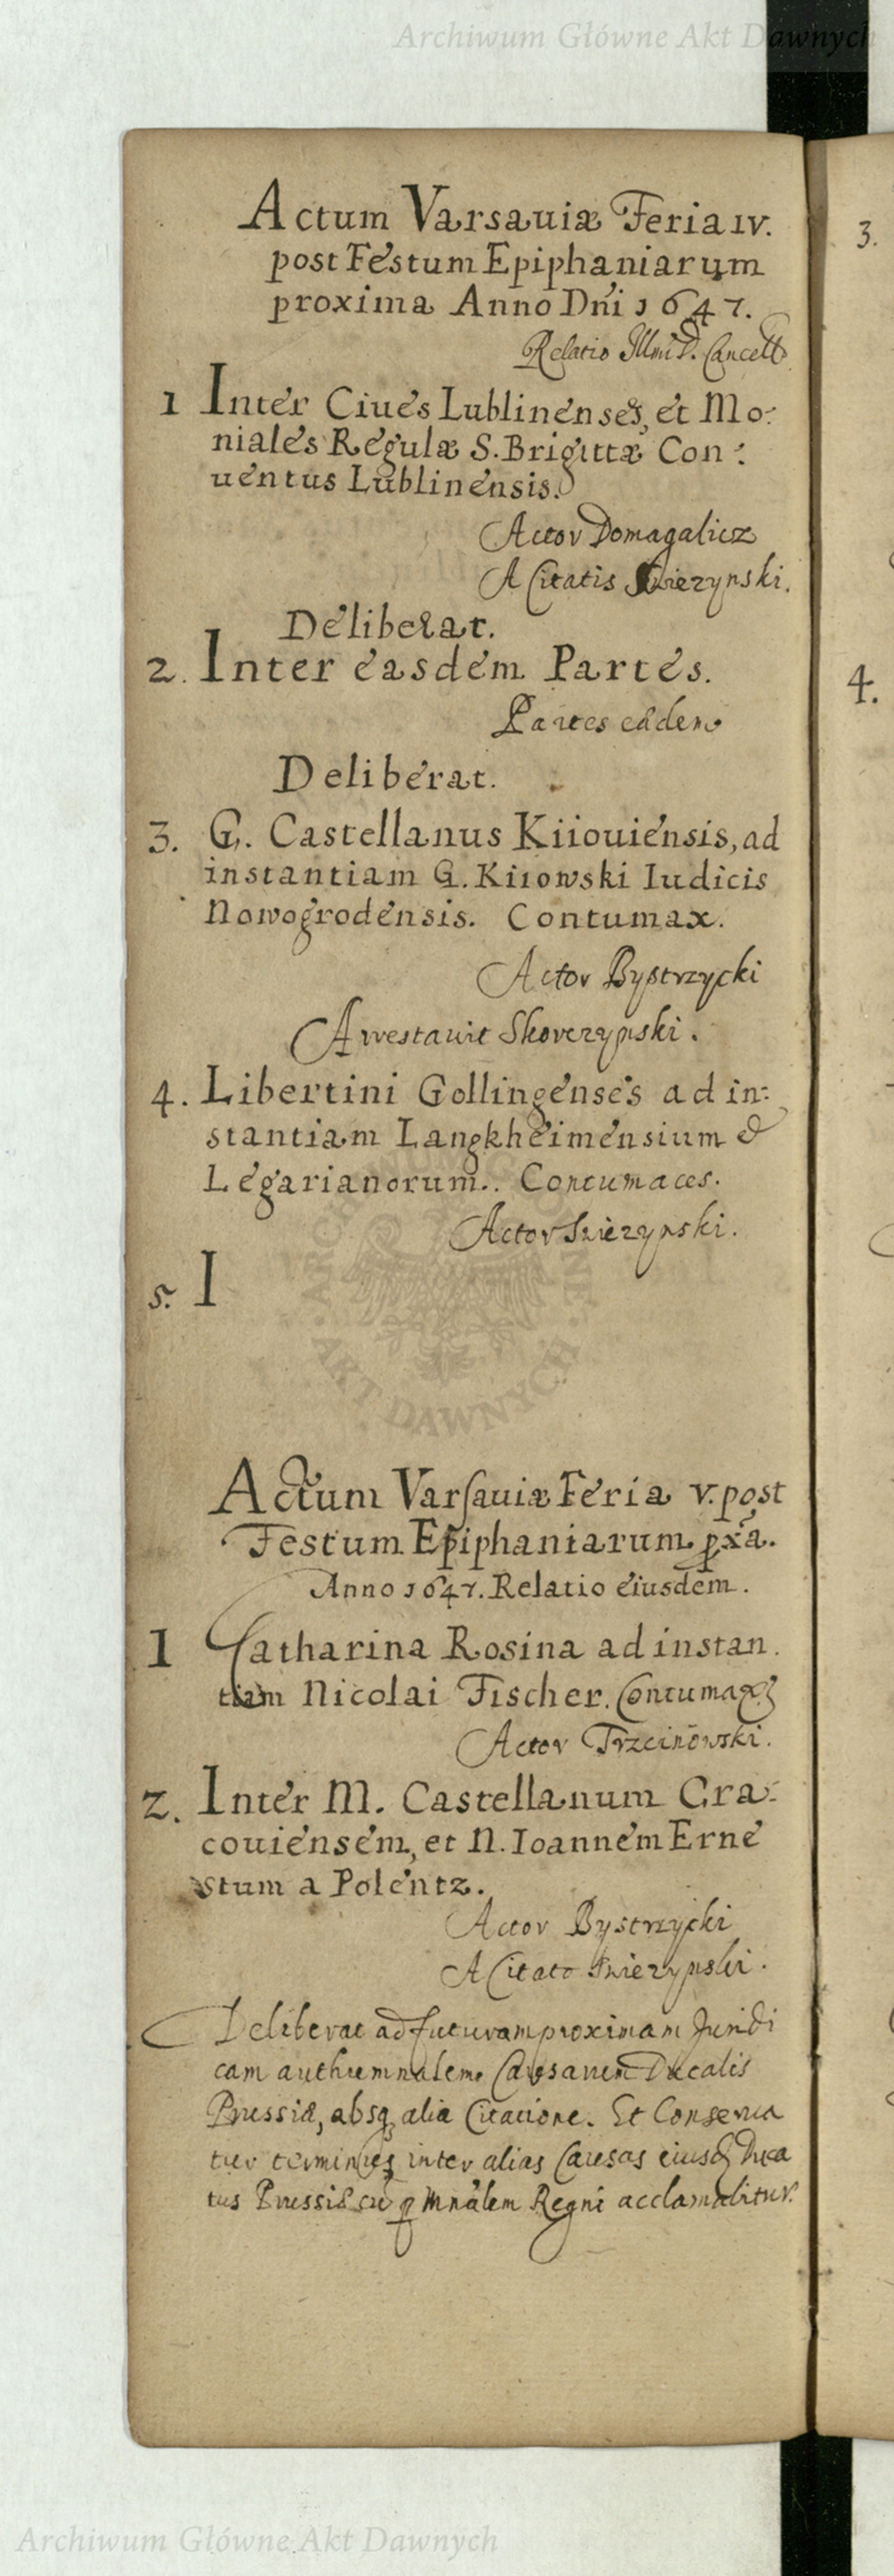 Archiwum Główne Akt Dawnych
Actum Varsauiæ Feria IV.
post Festum Epiphaniarum
proxima Anno Dni 1647.
Relatio Illmi D. Cancell
1 Inter Ciues Lublinenses, et Mo:
niales Regulæ S. Brigittæ Con:
uentus Lublinensis.
Actor Domagalicz
A Citatis Swiezynski.
Deliberat.
2. Inter easdem Partes.
Partes eædem
Deliberat.
3. G. Castellanus Kiiouiensis, ad
instantiam G. Kiiowski Iudicis
Nowogrodensis. Contumax.
Actor Bystrzycki
Arrestauit Skorczynski.
4. Libertini Gollingenses ad in:
stantiam Langkheimensium &
Legarianorum. Contumaces.
Actor Swiezynski.
5. I
Actum Varsauiæ Feria V. post
Festum Epiphaniarum pxa.
Anno 1647. Relatio eiusdem.
1 Catharina Rosina ad instan
tiam Nicolai Fischer. Contumax
Actor Trzcinowski.
2. Inter M. Castellanum Cra:
couiensem, et N. Ioannem Erne
stum a Polentz.
Actor Bystrzycki
A Citato Swiezynski.
Deliberat ad futuram proximam Juridi
cam authumnalem Causarum Ducalis
Prussiæ, absq alia Citatione. Et Conserua
tur terminus inter alias Causas eiusd Duca
tus Prussiæ cu acclamabitur.
3.
4.
AKT DAWNYCH
Archiwum Główne Akt Dawnych